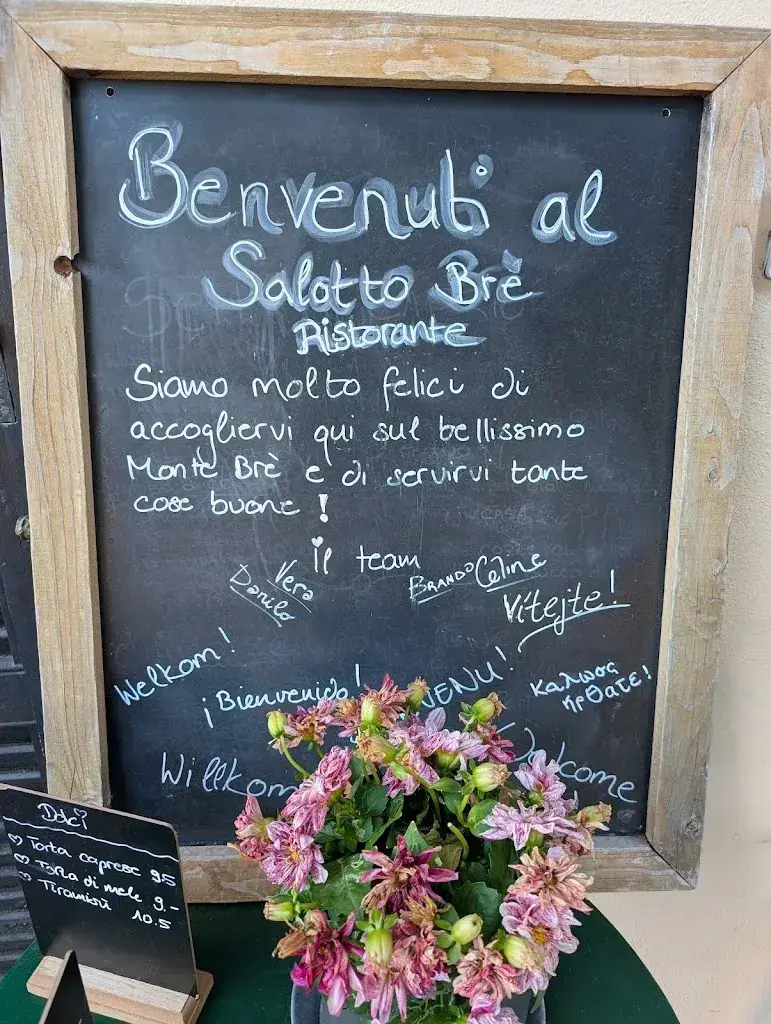 Benvenuti al
Salotto Brè
Ristorante
Siamo molto felici di
accogliervi qui sul bellissimo
Monte Brè e di servirvi tante
cose buone!
il team
Vera
Danilo
BRANDO
Celine
Vítejte!
Welkom!
¡Bienvenido!
VENU!
Καλωσ
ήρθατε!
Willkom
Welcome
Dolci
Torta caprese 9.5
Torta di mele 9.-
Tiramisù 10.5